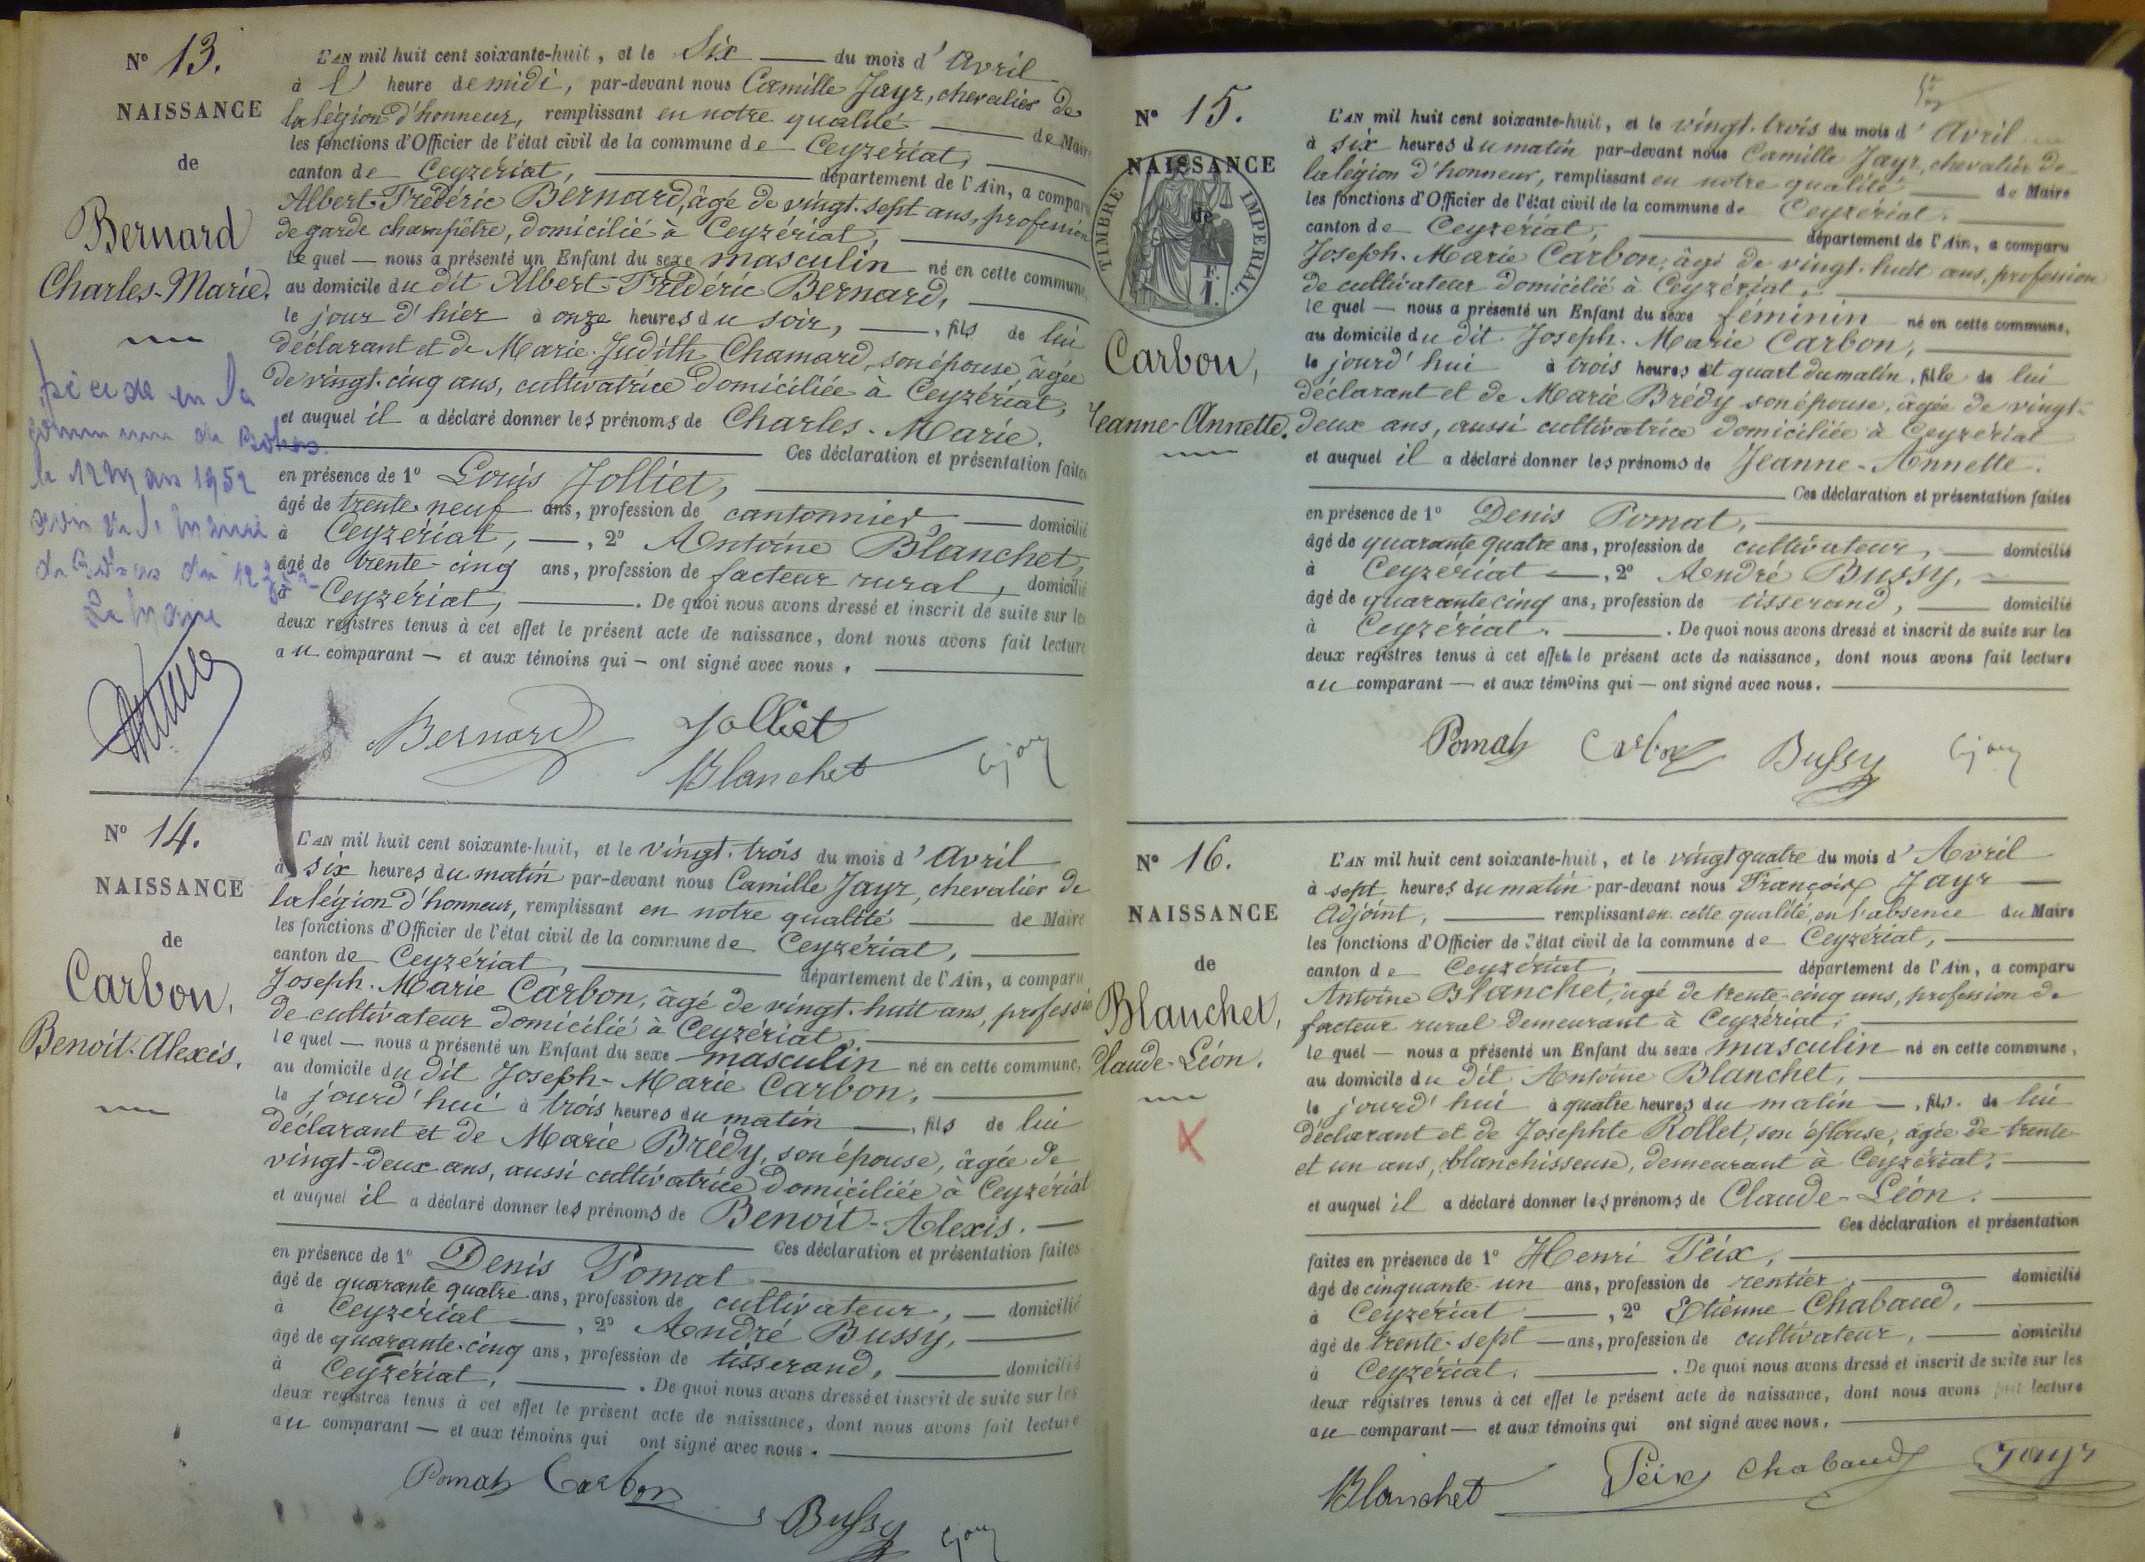 N° 13.
NAISSANCE
de
Bernard
Charles-Marie.
la
commune de
le 12 1952
Le Maire
L'AN mil huit cent soixante-huit, et le Six du mois d'Avril
à L'heure de midi, par-devant nous Camille Jayr, chevalier de
la légion d'honneur, remplissant en notre qualité de Maire
les fonctions d'Officier de l'état civil de la commune de Ceyzériat,
canton de Ceyzériat, département de l'Ain, a comparu
Albert-Frédéric Bernard, âgé de vingt-sept ans, profession
de garde champêtre, domicilié à Ceyzériat,
lequel — nous a présenté un Enfant du sexe masculin né en cette commune,
au domicile du dit Albert-Frédéric Bernard,
le jour d'hier à onze heures du soir, —, fils de lui
déclarant et de Marie-Judith Chamard, son épouse âgée
de vingt-cinq ans, cultivatrice domiciliée à Ceyzériat,
et auquel il a déclaré donner les prénoms de Charles-Marie.
Ces déclaration et présentation faites
en présence de 1° Louis Jolliet,
âgé de trente neuf ans, profession de cantonnier, — domicilié
à Ceyzériat, —, 2° Antoine Blanchet,
âgé de trente-cinq ans, profession de facteur rural, domicilié
à Ceyzériat, —. De quoi nous avons dressé et inscrit de suite sur les
deux registres tenus à cet effet le présent acte de naissance, dont nous avons fait lecture
au comparant — et aux témoins qui — ont signé avec nous.
Bernard Jolliet
Blanchet C. Jayr
N° 14.
NAISSANCE
de
Carbon,
Benoit-Alexis.
L'AN mil huit cent soixante-huit, et le vingt-trois du mois d'Avril
à six heures du matin par-devant nous Camille Jayr, chevalier de
la légion d'honneur, remplissant en notre qualité de Maire
les fonctions d'Officier de l'état civil de la commune de Ceyzériat,
canton de Ceyzériat, département de l'Ain, a comparu
Joseph-Marie Carbon, âgé de vingt-huit ans, profession
de cultivateur domicilié à Ceyzériat,
lequel — nous a présenté un Enfant du sexe masculin né en cette commune,
au domicile du dit Joseph-Marie Carbon,
le jourd'hui à trois heures du matin —, fils de lui
déclarant et de Marie Brédy, son épouse, âgée de
vingt-deux ans, aussi cultivatrice domiciliée à Ceyzériat
et auquel il a déclaré donner les prénoms de Benoit-Alexis.
Ces déclaration et présentation faites
en présence de 1° Denis Pomat
âgé de quarante quatre ans, profession de cultivateur, — domicilié
à Ceyzériat —, 2° André Bussy,
âgé de quarante-cinq ans, profession de tisserand, domicilié
à Ceyzériat, —. De quoi nous avons dressé et inscrit de suite sur les
deux registres tenus à cet effet le présent acte de naissance, dont nous avons fait lecture
au comparant — et aux témoins qui ont signé avec nous.
Pomat Carbon
Bussy C. Jayr
N° 15.
NAISSANCE
de
TIMBRE IMPERIAL.
Carbon,
Jeanne-Annette.
L'AN mil huit cent soixante-huit, et le vingt-trois du mois d'Avril
à six heures du matin par-devant nous Camille Jayr, chevalier de
la légion d'honneur, remplissant en notre qualité de Maire
les fonctions d'Officier de l'état civil de la commune de Ceyzériat,
canton de Ceyzériat, département de l'Ain, a comparu
Joseph-Marie Carbon, âgé de vingt-huit ans, profession
de cultivateur domicilié à Ceyzériat,
lequel — nous a présenté un Enfant du sexe féminin né en cette commune,
au domicile du dit Joseph-Marie Carbon,
le jourd'hui à trois heures et quart du matin, fille de lui
déclarant et de Marie Brédy son épouse, âgée de vingt-
deux ans, aussi cultivatrice domiciliée à Ceyzériat
et auquel il a déclaré donner les prénoms de Jeanne-Annette.
Ces déclaration et présentation faites
en présence de 1° Denis Pomat,
âgé de quarante quatre ans, profession de cultivateur, — domicilié
à Ceyzériat —, 2° André Bussy,
âgé de quarante cinq ans, profession de tisserand, — domicilié
à Ceyzériat. —. De quoi nous avons dressé et inscrit de suite sur les
deux registres tenus à cet effet le présent acte de naissance, dont nous avons fait lecture
au comparant — et aux témoins qui — ont signé avec nous.
Pomat Carbon Bussy C. Jayr
N° 16.
NAISSANCE
de
Blanchet,
Claude-Léon.
L'AN mil huit cent soixante-huit, et le vingt quatre du mois d'Avril
à sept heures du matin par-devant nous François Jayr
Adjoint, remplissant en cette qualité, en l'absence du Maire
les fonctions d'Officier de l'état civil de la commune de Ceyzériat,
canton de Ceyzériat, département de l'Ain, a comparu
Antoine Blanchet, âgé de trente-cinq ans, profession de
facteur rural demeurant à Ceyzériat;
lequel — nous a présenté un Enfant du sexe masculin né en cette commune,
au domicile du dit Antoine Blanchet,
le jourd'hui à quatre heures du matin —, fils. de lui
déclarant et de Josephte Rollet, son épouse, âgée de trente
et un ans, blanchisseuse, demeurant à Ceyzériat;
et auquel il a déclaré donner les prénoms de Claude-Léon.
Ces déclaration et présentation
faites en présence de 1° Henri Peix,
âgé de cinquante un ans, profession de rentier, domicilié
à Ceyzériat —, 2° Etienne Chabaud,
âgé de trente-sept — ans, profession de cultivateur, — domicilié
à Ceyzériat. —. De quoi nous avons dressé et inscrit de suite sur les
deux registres tenus à cet effet le présent acte de naissance, dont nous avons fait lecture
au comparant — et aux témoins qui ont signé avec nous.
Blanchet Peix Chabaud Jayr